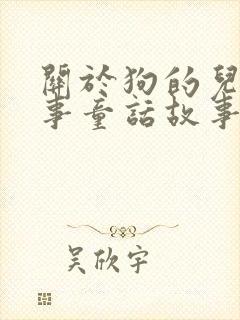 關於狗的兒
事童話故事
吳欣宇